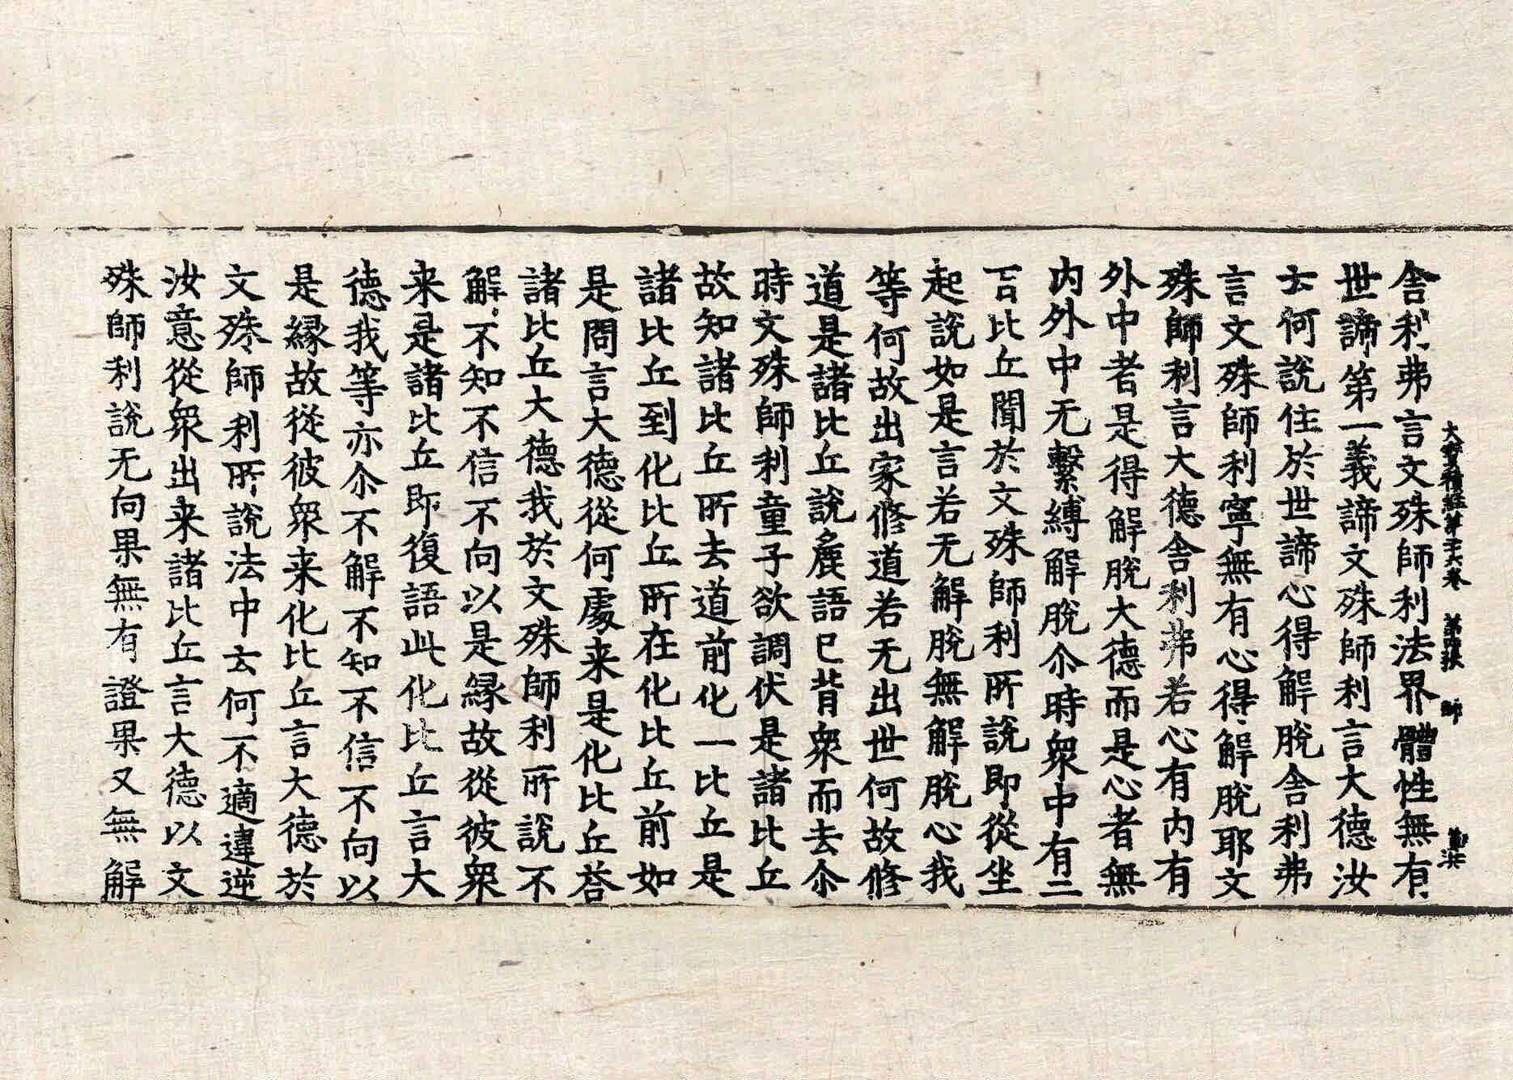 大寶積經第二十六卷 第四張 師
舍利弗言文殊師利法界體性無有
世諦第一義諦文殊師利言大德汝
云何說住於世諦心得解脫舍利弗
言文殊師利寧無有心得解脫耶文
殊師利言大德舍利弗若心有內有
外中者是得解脫大德而是心者無
內外中无繫縛解脫尒時衆中有二
百比丘聞於文殊師利所說即從坐
起說如是言若无解脫無解脫心我
等何故出家修道若无出世何故修
道是諸比丘說麁語已背衆而去尒
時文殊師利童子欲調伏是諸比丘
故知諸比丘所去道前化一比丘是
諸比丘到化比丘所在化比丘前如
是問言大德從何處来是化比丘荅
諸比丘大德我於文殊師利所說不
解不知不信不向以是緣故從彼衆
来是諸比丘即復語此化比丘言大
德我等亦尒不解不知不信不向以
是緣故從彼衆来化比丘言大德於
文殊師利所說法中云何不適違逆
汝意從衆出来諸比丘言大德以文
殊師利說无向果無有證果又無解